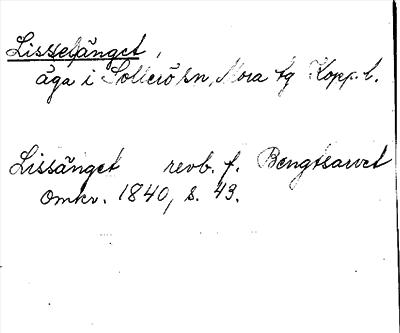 Lisselänget,
äga i Sollerö sn, Mora tg Kopp. l.
Lissänget revb. f. Bengtsarvet
Omkr. 1840, s. 43.